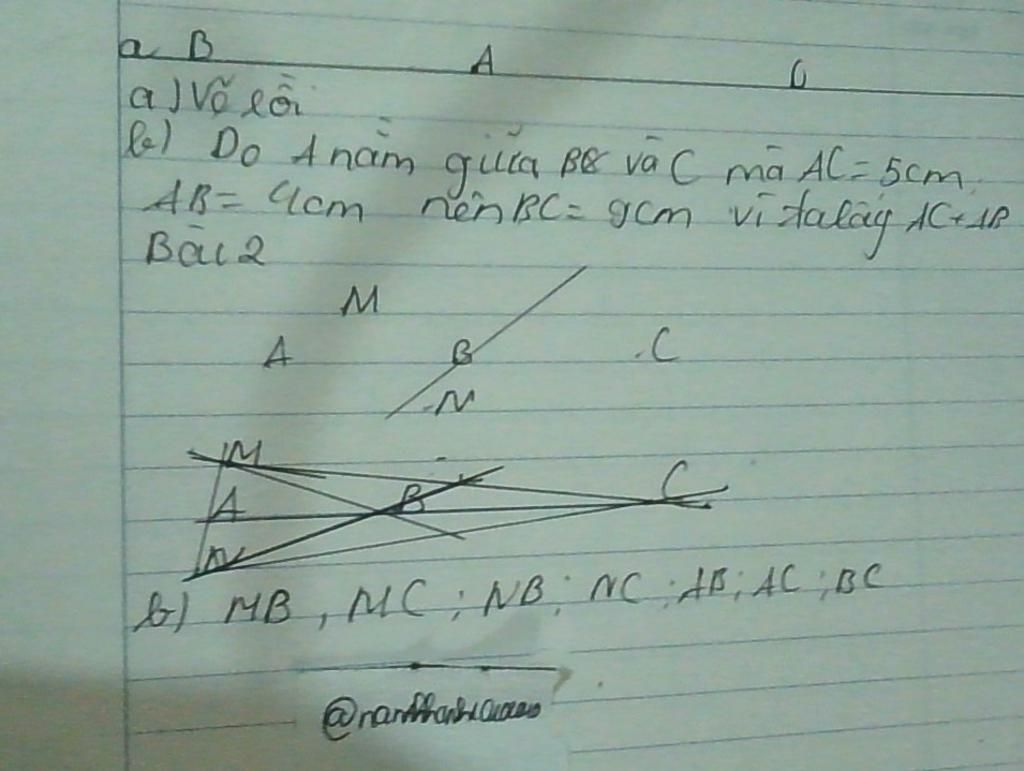 a B A C
a) Vẽ rồi
b) Do A nằm giữa B và C mà AC = 5cm
AB = 4cm nên BC = 9cm vì ta lấy AC + AB
Bài 2
M
A B C
N
M
B C
A
N
b) MB, MC; NB; NC; AB; AC; BC